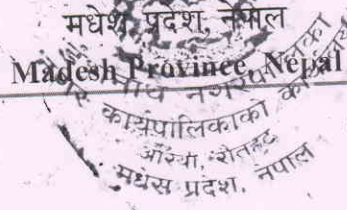 मधेश प्रदेश, नेपाल
Madesh Province, Nepal
नगरपालिका
कार्यपालिकाको
औरैया, रौतहट
मधेस प्रदेश, नेपाल